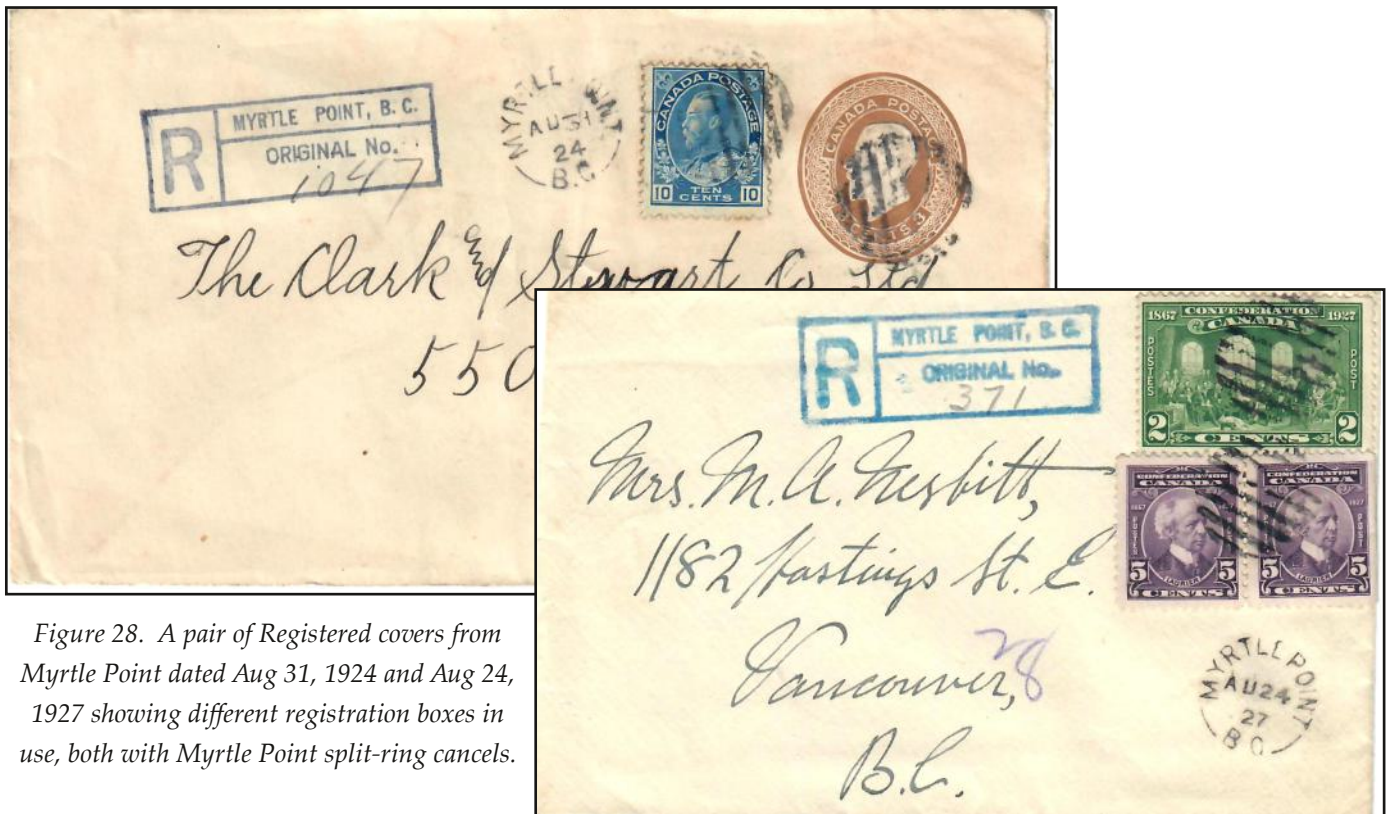 R
MYRTLE POINT, B. C.
ORIGINAL No.
1047
MYRTLE POINT
AU 31
24
B.C
CANADA POSTAGE
10 TEN CENTS 10
CANADA POSTAGE
The Clark & Stewart Co Ltd
550
R
MYRTLE POINT, B. C.
ORIGINAL No.
371
1867 CONFEDERATION 1927
CANADA
POSTES
POST
2 CENTS 2
CONFEDERATION
CANADA
1867 1927
POSTES
POST
LAURIER
5 CENTS 5
CONFEDERATION
CANADA
1867 1927
POSTES
POST
LAURIER
5 CENTS 5
Mrs. M. A. Nesbitt,
1182 Hastings St. E.
Vancouver,
28
B.C.
MYRTLE POINT
AU 24
27
B C
Figure 28. A pair of Registered covers from
Myrtle Point dated Aug 31, 1924 and Aug 24,
1927 showing different registration boxes in
use, both with Myrtle Point split-ring cancels.